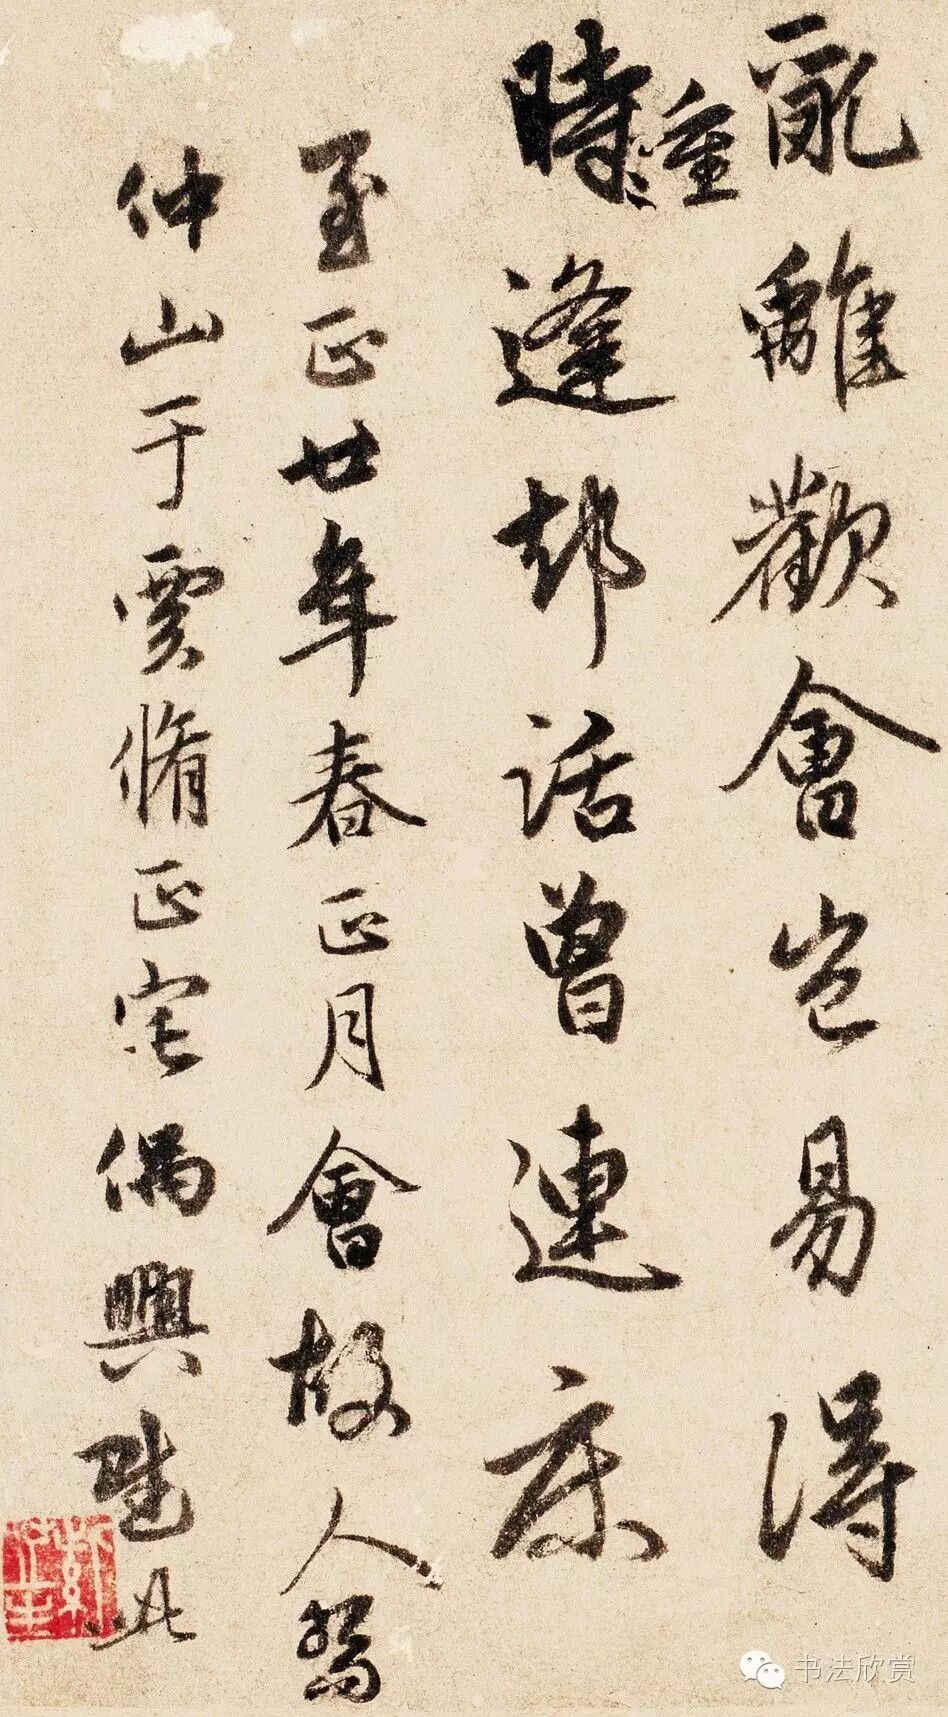 亂離歡會豈易得
時重逢却話曾連床
至正廿年春正月會故人
仲山于賈脩正宅偶興此
书法欣赏